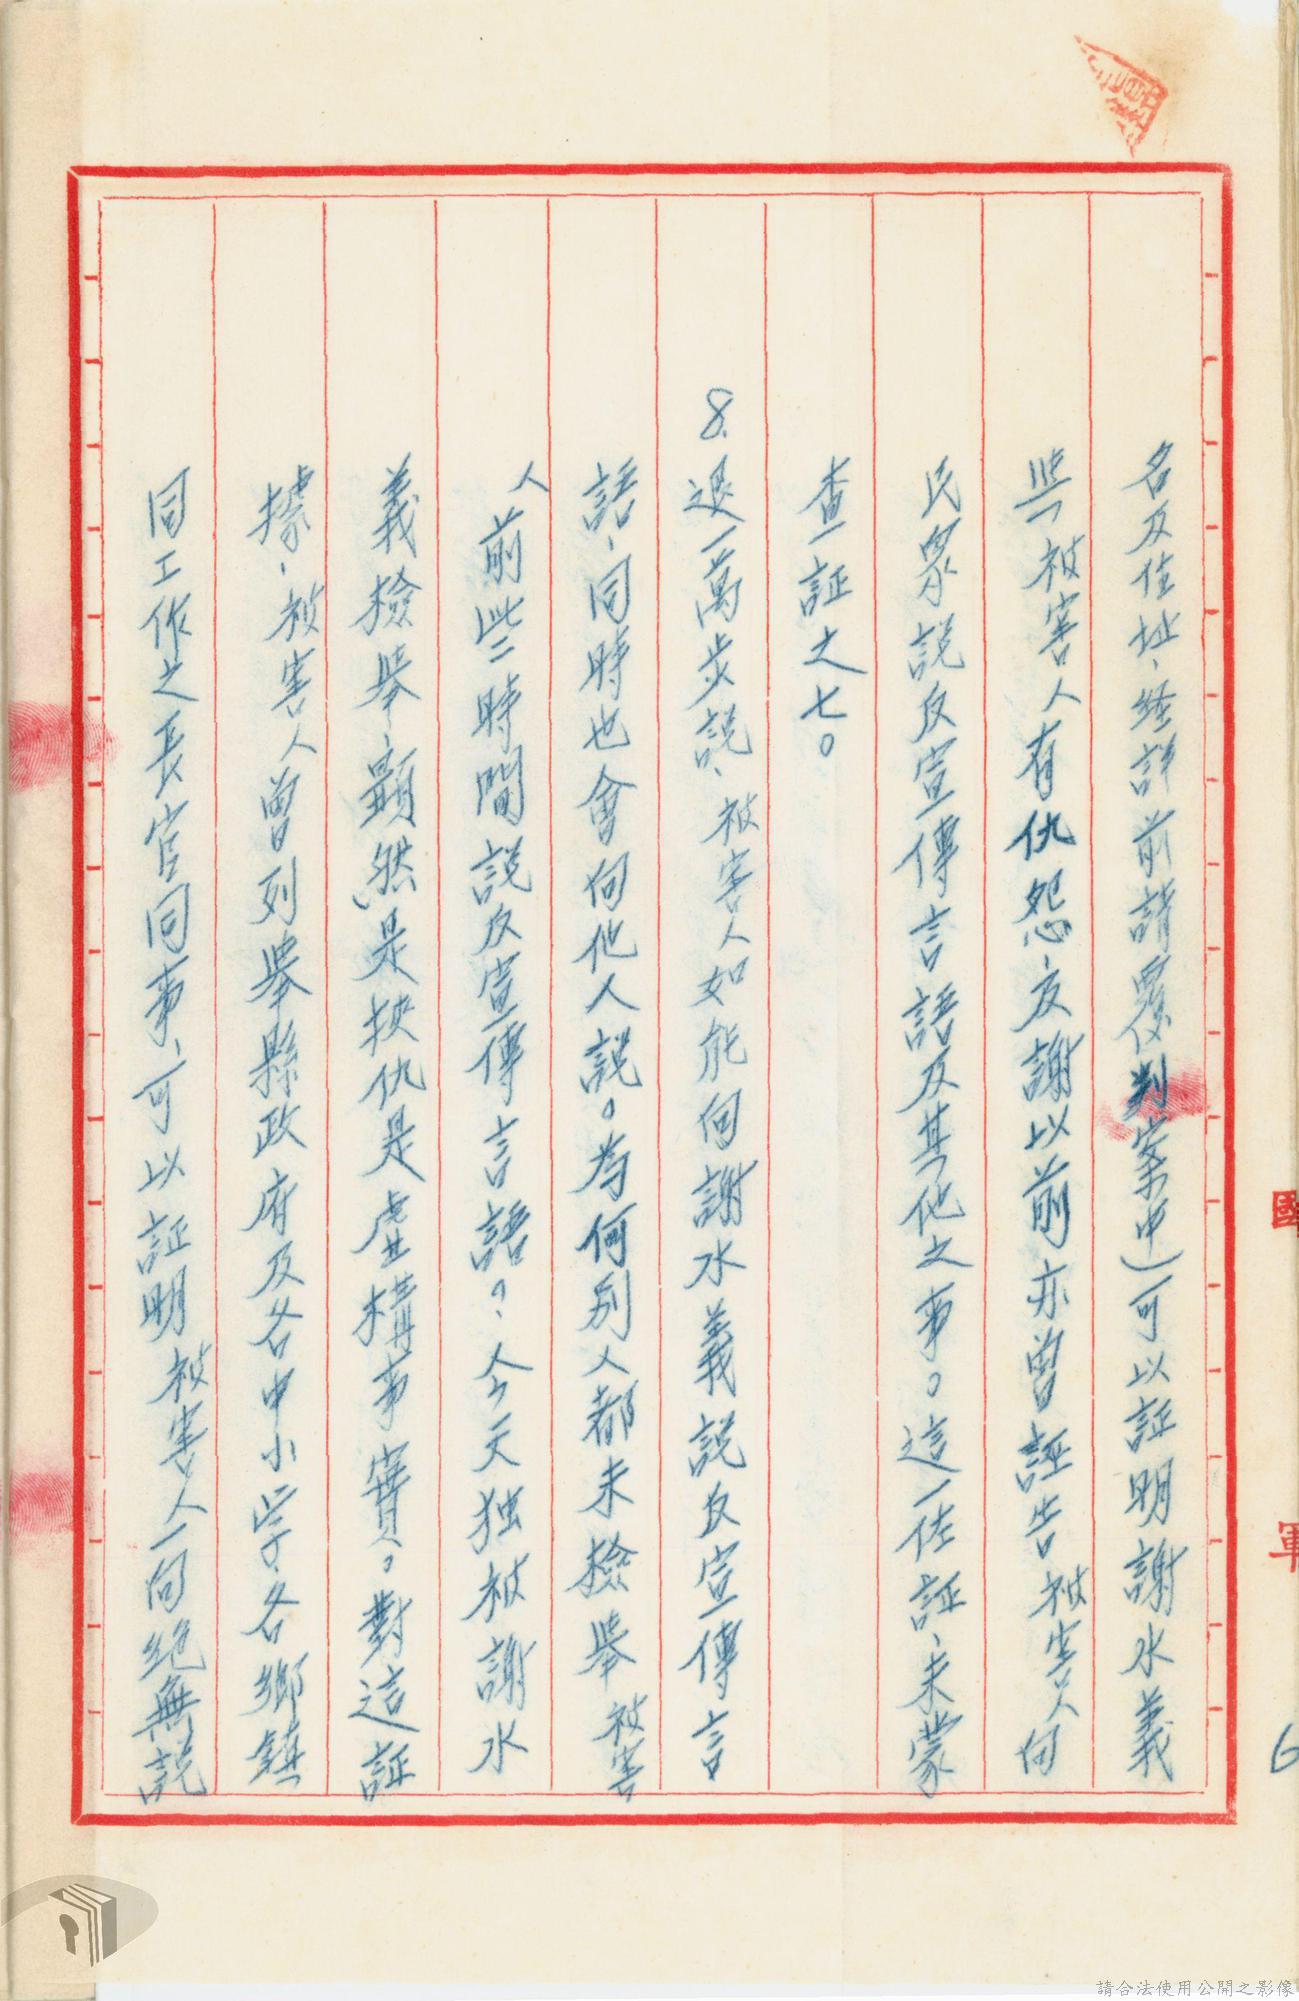 名及住址、経詳前請覆判案中)可以証明謝水義
与被害人有仇怨、及謝以前亦曾誣告被害人向
民眾説反宣傳言語及其他之事。這一佐証、未蒙
查証之七。
8.退一萬步説、被害人如能向謝水義説反宣傳言
語、同時也會向他人説。為何別人都未檢舉被害
人前些時間説反宣傳言語。、今天独被謝水
義檢舉、顯然是挾仇是虛構事實。對這証
據、被害人曾列舉縣政府及各中小学、各鄉鎮
同工作之長官同事、可以証明被害人一向絕無説
國
軍
6
請合法使用公開之影像